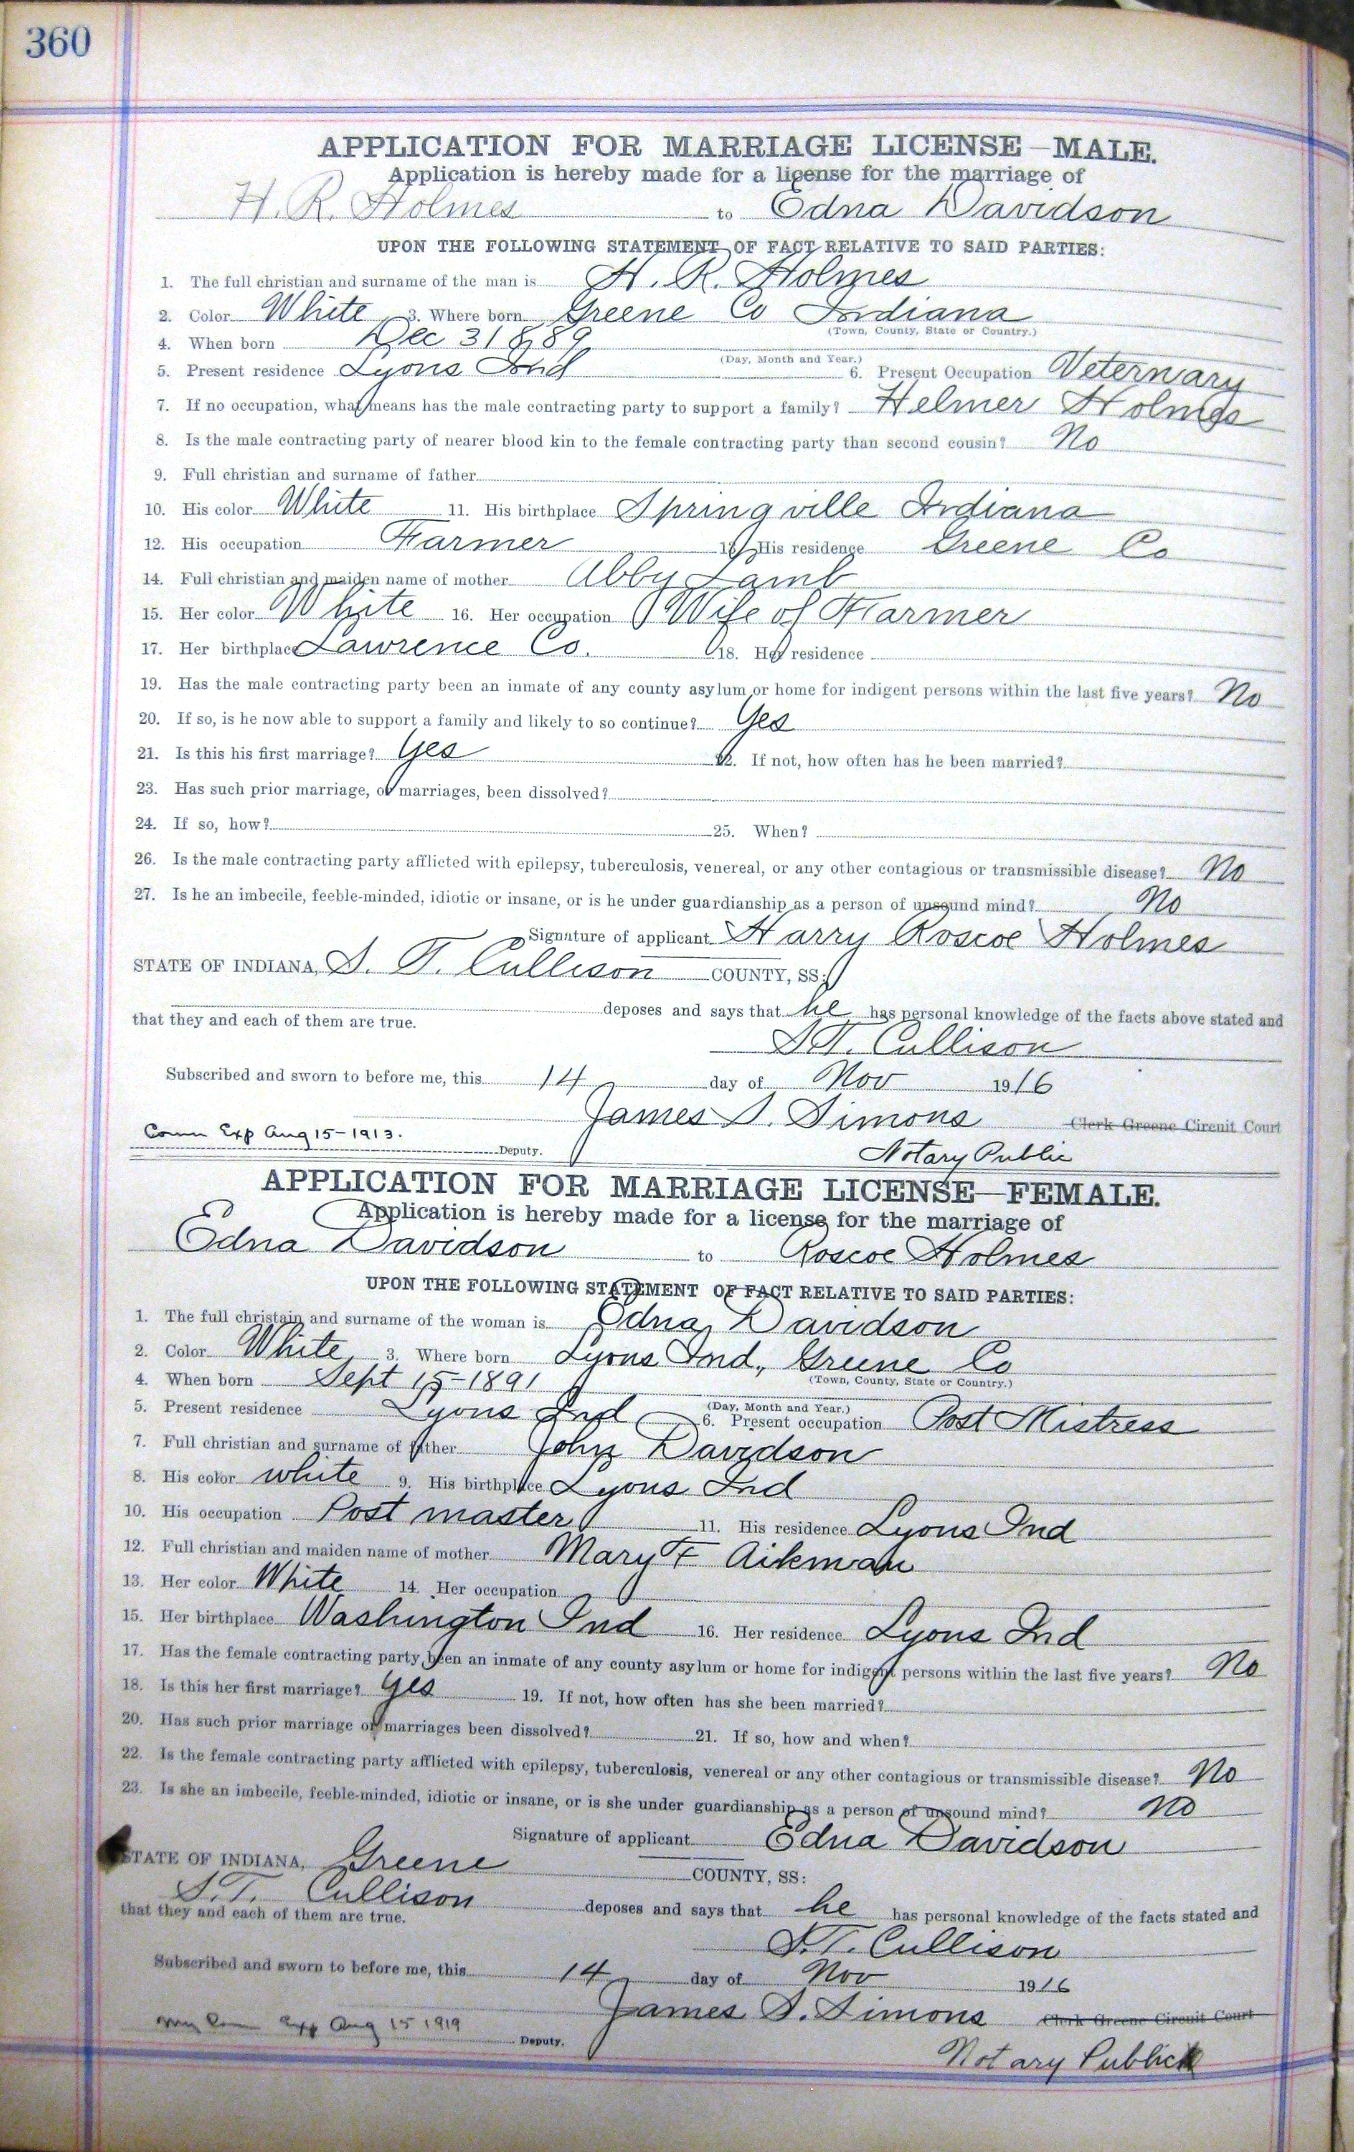 360
APPLICATION FOR MARRIAGE LICENSE—MALE.
Application is hereby made for a license for the marriage of
H. R. Holmes to Edna Davidson
UPON THE FOLLOWING STATEMENT OF FACT RELATIVE TO SAID PARTIES:
1. The full christian and surname of the man is H. R. Holmes
2. Color White 3. Where born Greene Co Indiana
(Town, County, State or Country.)
4. When born Dec 31 889
(Day, Month and Year.)
5. Present residence Lyons Ind 6. Present Occupation Veternary
7. If no occupation, what means has the male contracting party to support a family? Helmer Holmes
8. Is the male contracting party of nearer blood kin to the female contracting party than second cousin? No
9. Full christian and surname of father
10. His color White 11. His birthplace Springville Indiana
12. His occupation Farmer 13. His residence Greene Co
14. Full christian and maiden name of mother Abby Lamb
15. Her color White 16. Her occupation Wife of Farmer
17. Her birthplace Lawrence Co. 18. Her residence
19. Has the male contracting party been an inmate of any county asylum or home for indigent persons within the last five years? No
20. If so, is he now able to support a family and likely to so continue? Yes
21. Is this his first marriage? Yes 22. If not, how often has he been married?
23. Has such prior marriage, or marriages, been dissolved?
24. If so, how? 25. When?
26. Is the male contracting party afflicted with epilepsy, tuberculosis, venereal, or any other contagious or transmissible disease? No
27. Is he an imbecile, feeble-minded, idiotic or insane, or is he under guardianship as a person of unsound mind? No
Signature of applicant Harry Roscoe Holmes
STATE OF INDIANA, S. T. Cullison COUNTY, SS:
deposes and says that he has personal knowledge of the facts above stated and
that they and each of them are true.
S. T. Cullison
Subscribed and sworn to before me, this 14 day of Nov 1916
James S. Simons Clerk Greene Circuit Court
Comm Exp Aug 15-1913. Deputy. Notary Public
APPLICATION FOR MARRIAGE LICENSE—FEMALE.
Application is hereby made for a license for the marriage of
Edna Davidson to Roscoe Holmes
UPON THE FOLLOWING STATEMENT OF FACT RELATIVE TO SAID PARTIES:
1. The full christain and surname of the woman is Edna Davidson
2. Color White 3. Where born Lyons Ind., Greene Co
(Town, County, State or Country.)
4. When born Sept 15-1891
(Day, Month and Year.)
5. Present residence Lyons Ind 6. Present occupation Post Mistress
7. Full christian and surname of father John Davidson
8. His color white 9. His birthplace Lyons Ind
10. His occupation Post master 11. His residence Lyons Ind
12. Full christian and maiden name of mother Mary F Aikman
13. Her color White 14. Her occupation
15. Her birthplace Washington Ind 16. Her residence Lyons Ind
17. Has the female contracting party been an inmate of any county asylum or home for indigent persons within the last five years? No
18. Is this her first marriage? yes 19. If not, how often has she been married?
20. Has such prior marriage or marriages been dissolved? 21. If so, how and when?
22. Is the female contracting party afflicted with epilepsy, tuberculosis, venereal or any other contagious or transmissible disease? No
23. Is she an imbecile, feeble-minded, idiotic or insane, or is she under guardianship as a person of unsound mind? No
Signature of applicant Edna Davidson
STATE OF INDIANA, Greene COUNTY, SS:
S. T. Cullison deposes and says that he has personal knowledge of the facts stated and
that they and each of them are true.
S. T. Cullison
Subscribed and sworn to before me, this 14 day of Nov 1916
James S. Simons Clerk Greene Circuit Court
My Com Exp Aug 15 1919 Deputy.
Notary Public